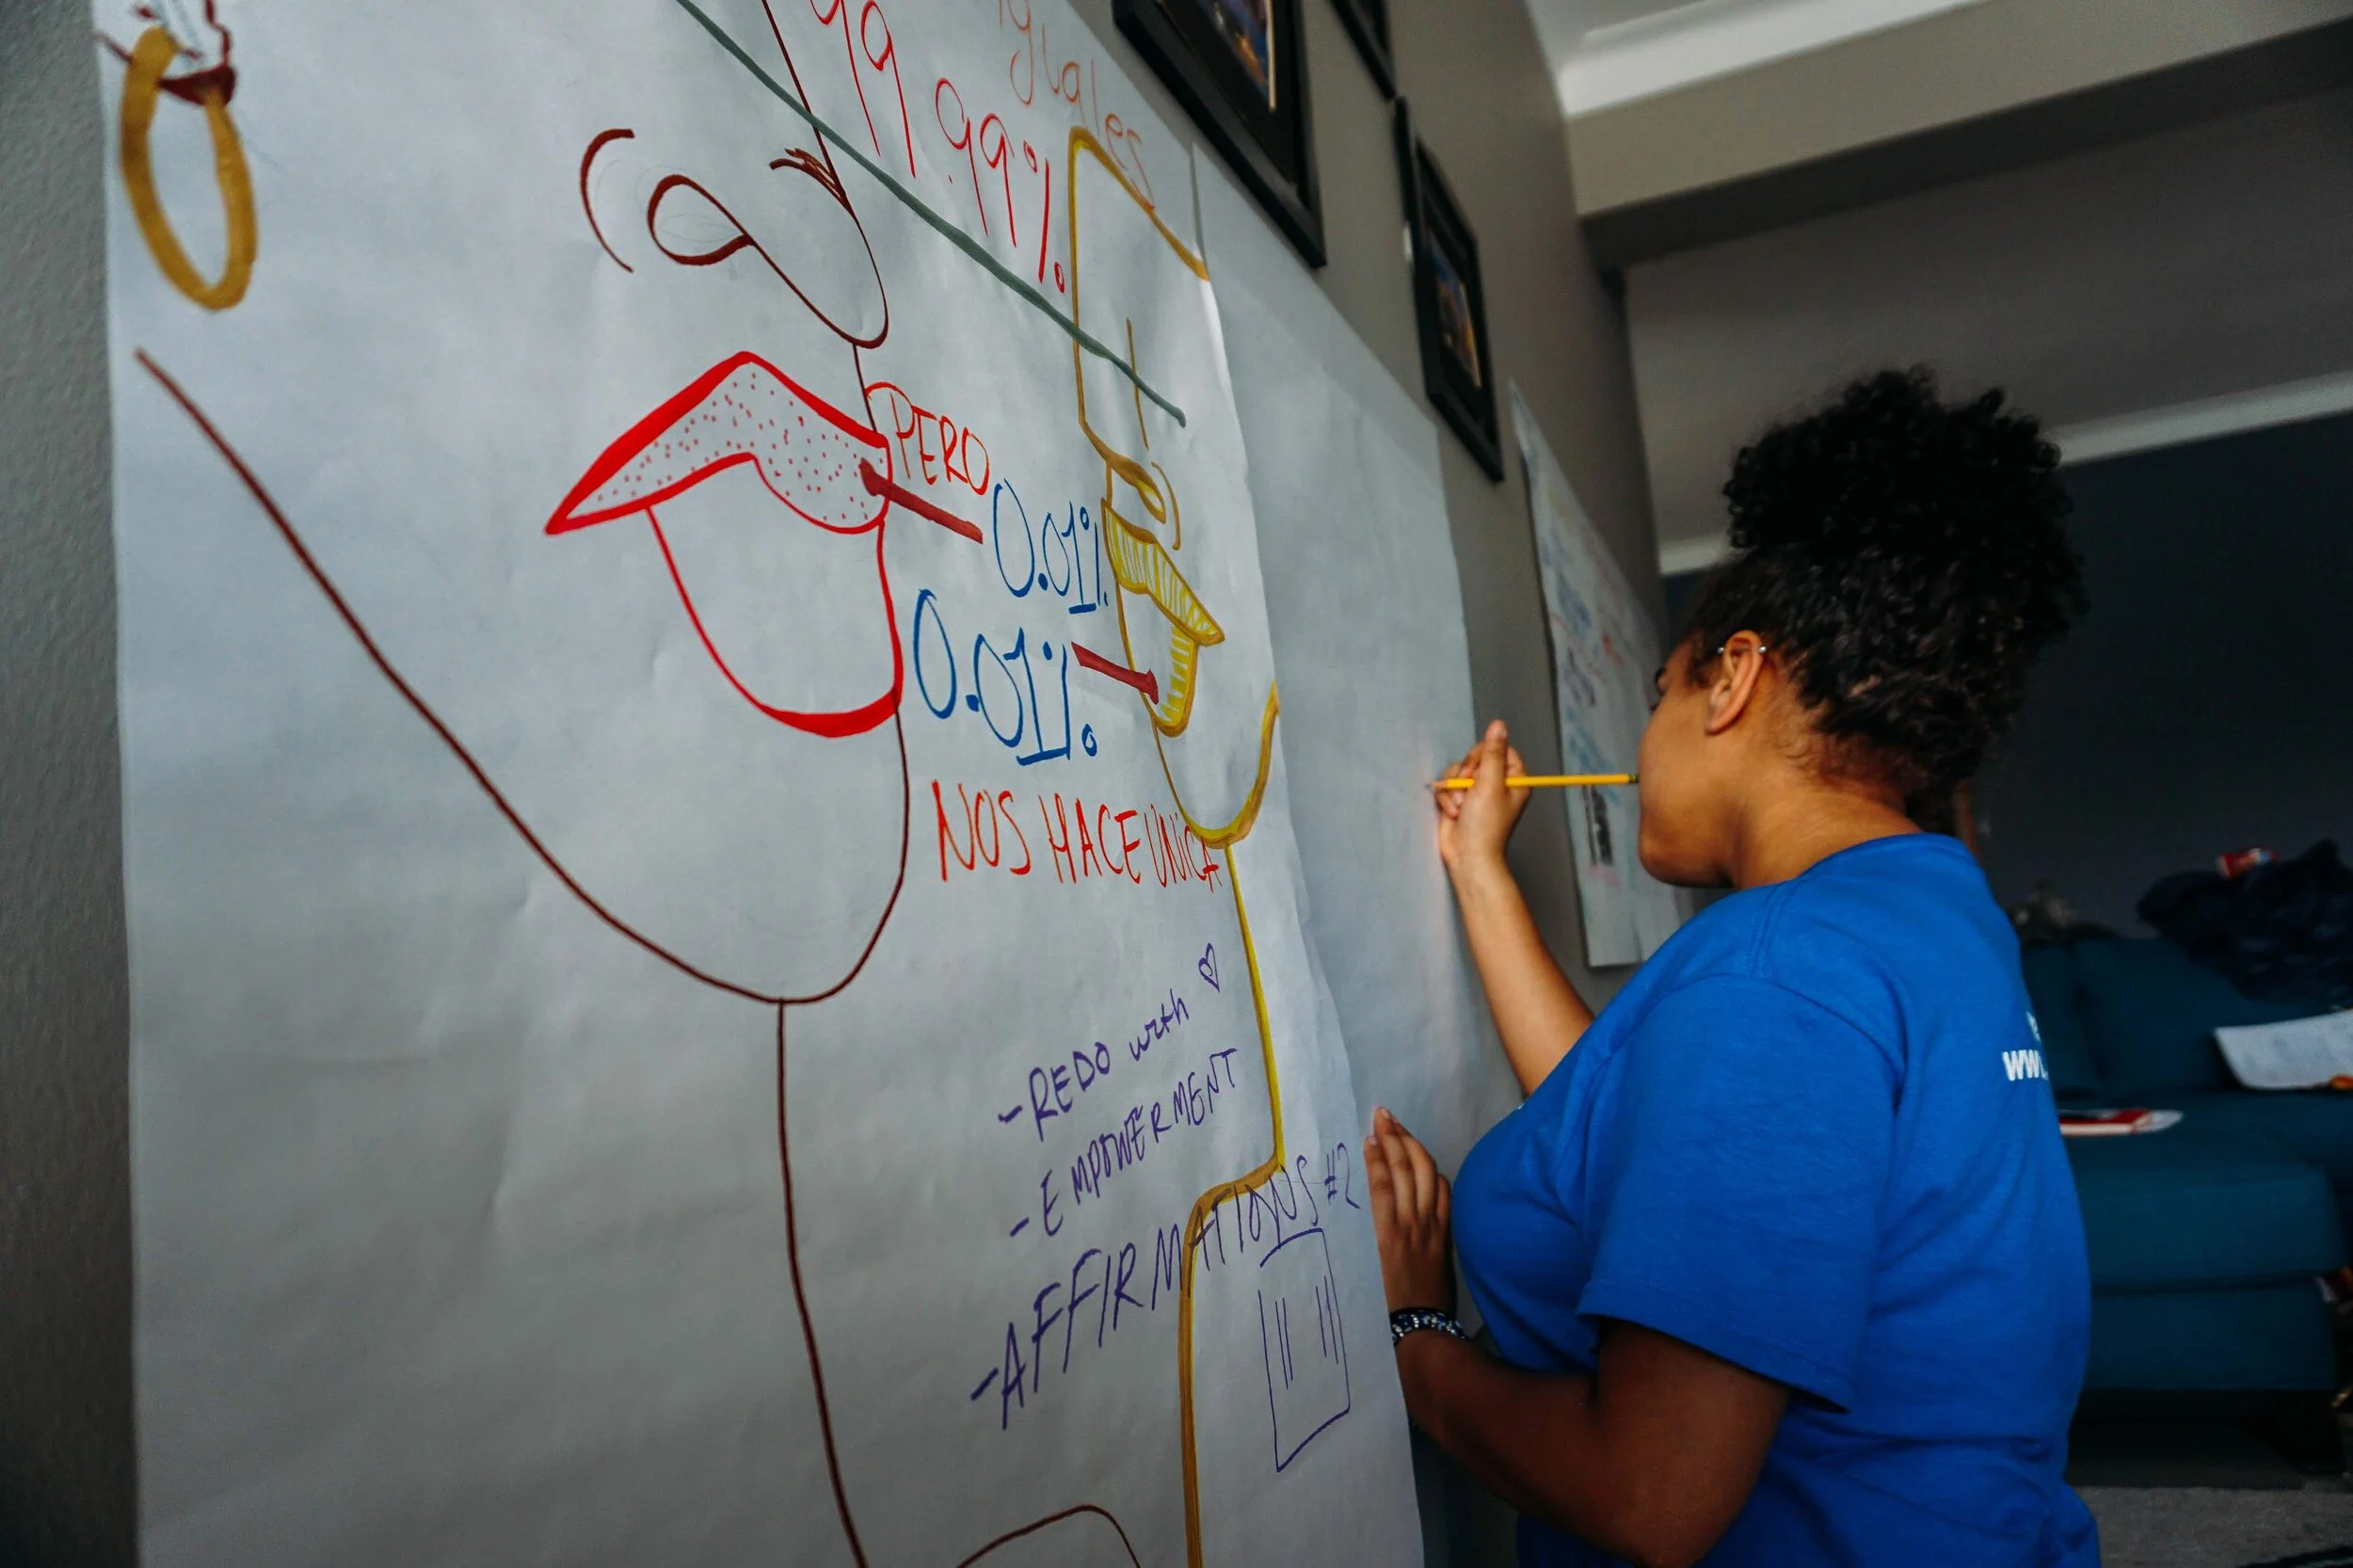 iguales
99.99%
PERO
0.01%
0.01%
NOS HACE UNICA
-REDO with ♡
-EMPOWERMENT
-AFFIRMATIONS #2